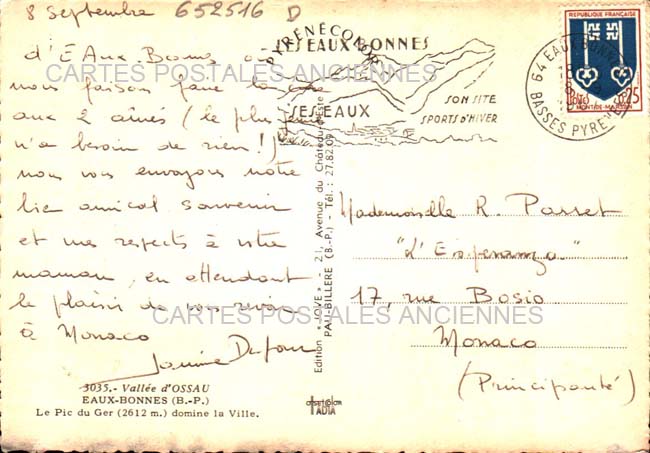 8 Septembre
652516 D
d'Eaux-Bonnes où
nous faison faire la cure
aux 2 ainés (le plus jeune
n'a besoin de rien!)
nous vous envoyons notre
bien amical souvenir
et mes respects à votre
maman, en attendant
le plaisir de vous revoir
à Monaco
3035.- Vallée d'OSSAU
EAUX-BONNES (B.-P.)
Le Pic du Ger (2612 m.) domine la Ville.
Edition "JOVE" - 21, Avenue du Château d'Este
PAU-BILLERE (B.-P.) - Tél. : 27.82.09
LES EAUX BONNES
SES EAUX
SON SITE
SPORTS D'HIVER
64 EAUX BONNES
BASSES PYRENEES
REPUBLIQUE FRANÇAISE
MONT-DE-MARSAN
0,25
Mademoiselle R. Passet
"L'Esperanza"
17, rue Bosio
Monaco
(Principauté)
TADIA
CARTES POSTALES ANCIENNES
CARTES POSTALES ANCIENNES